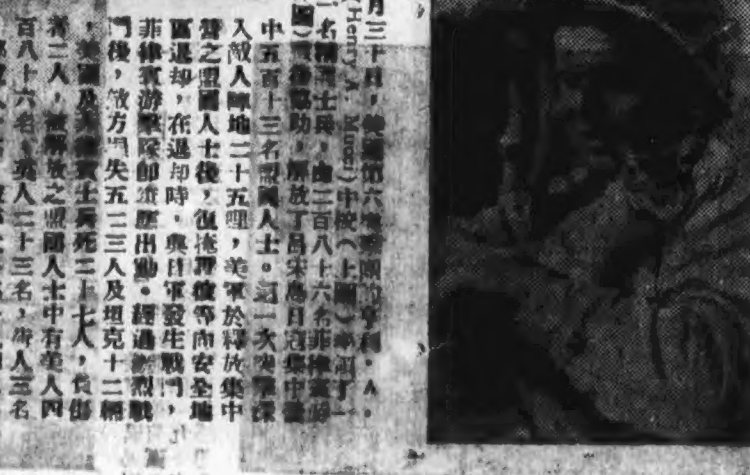 月三十日，美國第六突擊團的亨利·A·
(Henry A. Mucci)中校（上圖）率領了一
百二十一名精兵士兵，由二百八十六名菲律賓游
）協助，解放了呂宋島日寇集中營
中五百十三名盟國人士。這一次突擊深
入敵人陣地二十五哩，美軍於釋放集中
營之盟國人士後，復掩護彼等向安全地
區退却，在退却時，與日軍發生戰鬥，
菲律賓游擊隊即策應出動。經過激烈戰
鬥後，敵方損失五二三人及坦克十二輛
，美國及菲律賓士兵死二十七人，負傷
者二人，被解放之盟國人士中有美人四
百八十六名，英人二十三名，荷人三名